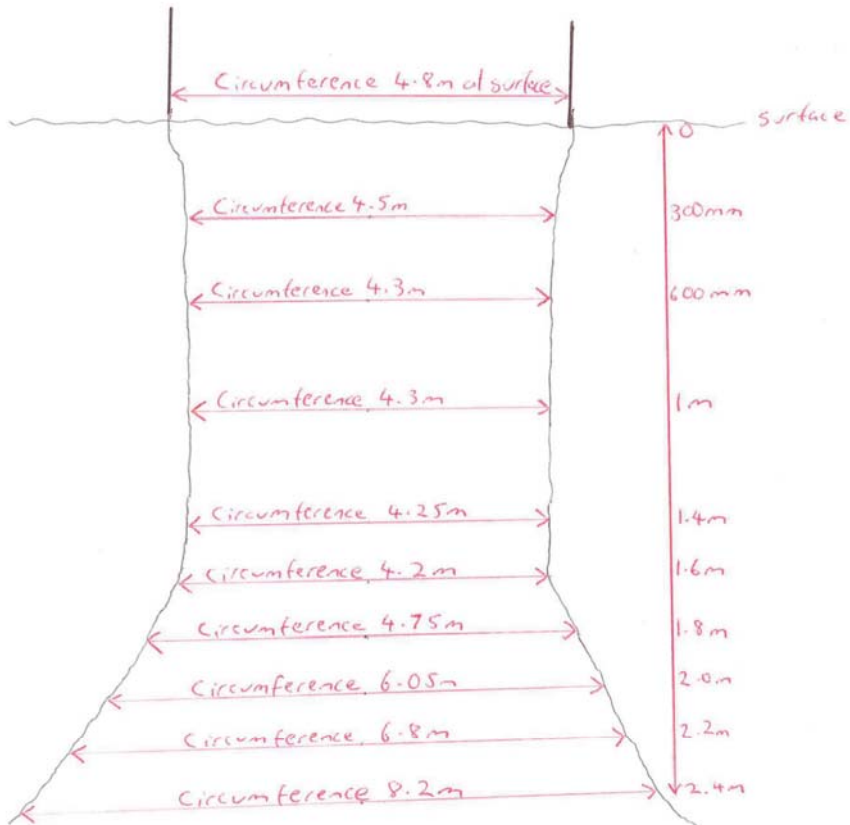 Circumference 4.8m at surface
surface
0
Circumference 4.5m
300mm
Circumference 4.3m
600mm
Circumference 4.3m
1m
Circumference 4.25m
1.4m
Circumference 4.2m
1.6m
Circumference 4.75m
1.8m
Circumference 6.05m
2.0m
Circumference 6.8m
2.2m
Circumference 8.2m
2.4m